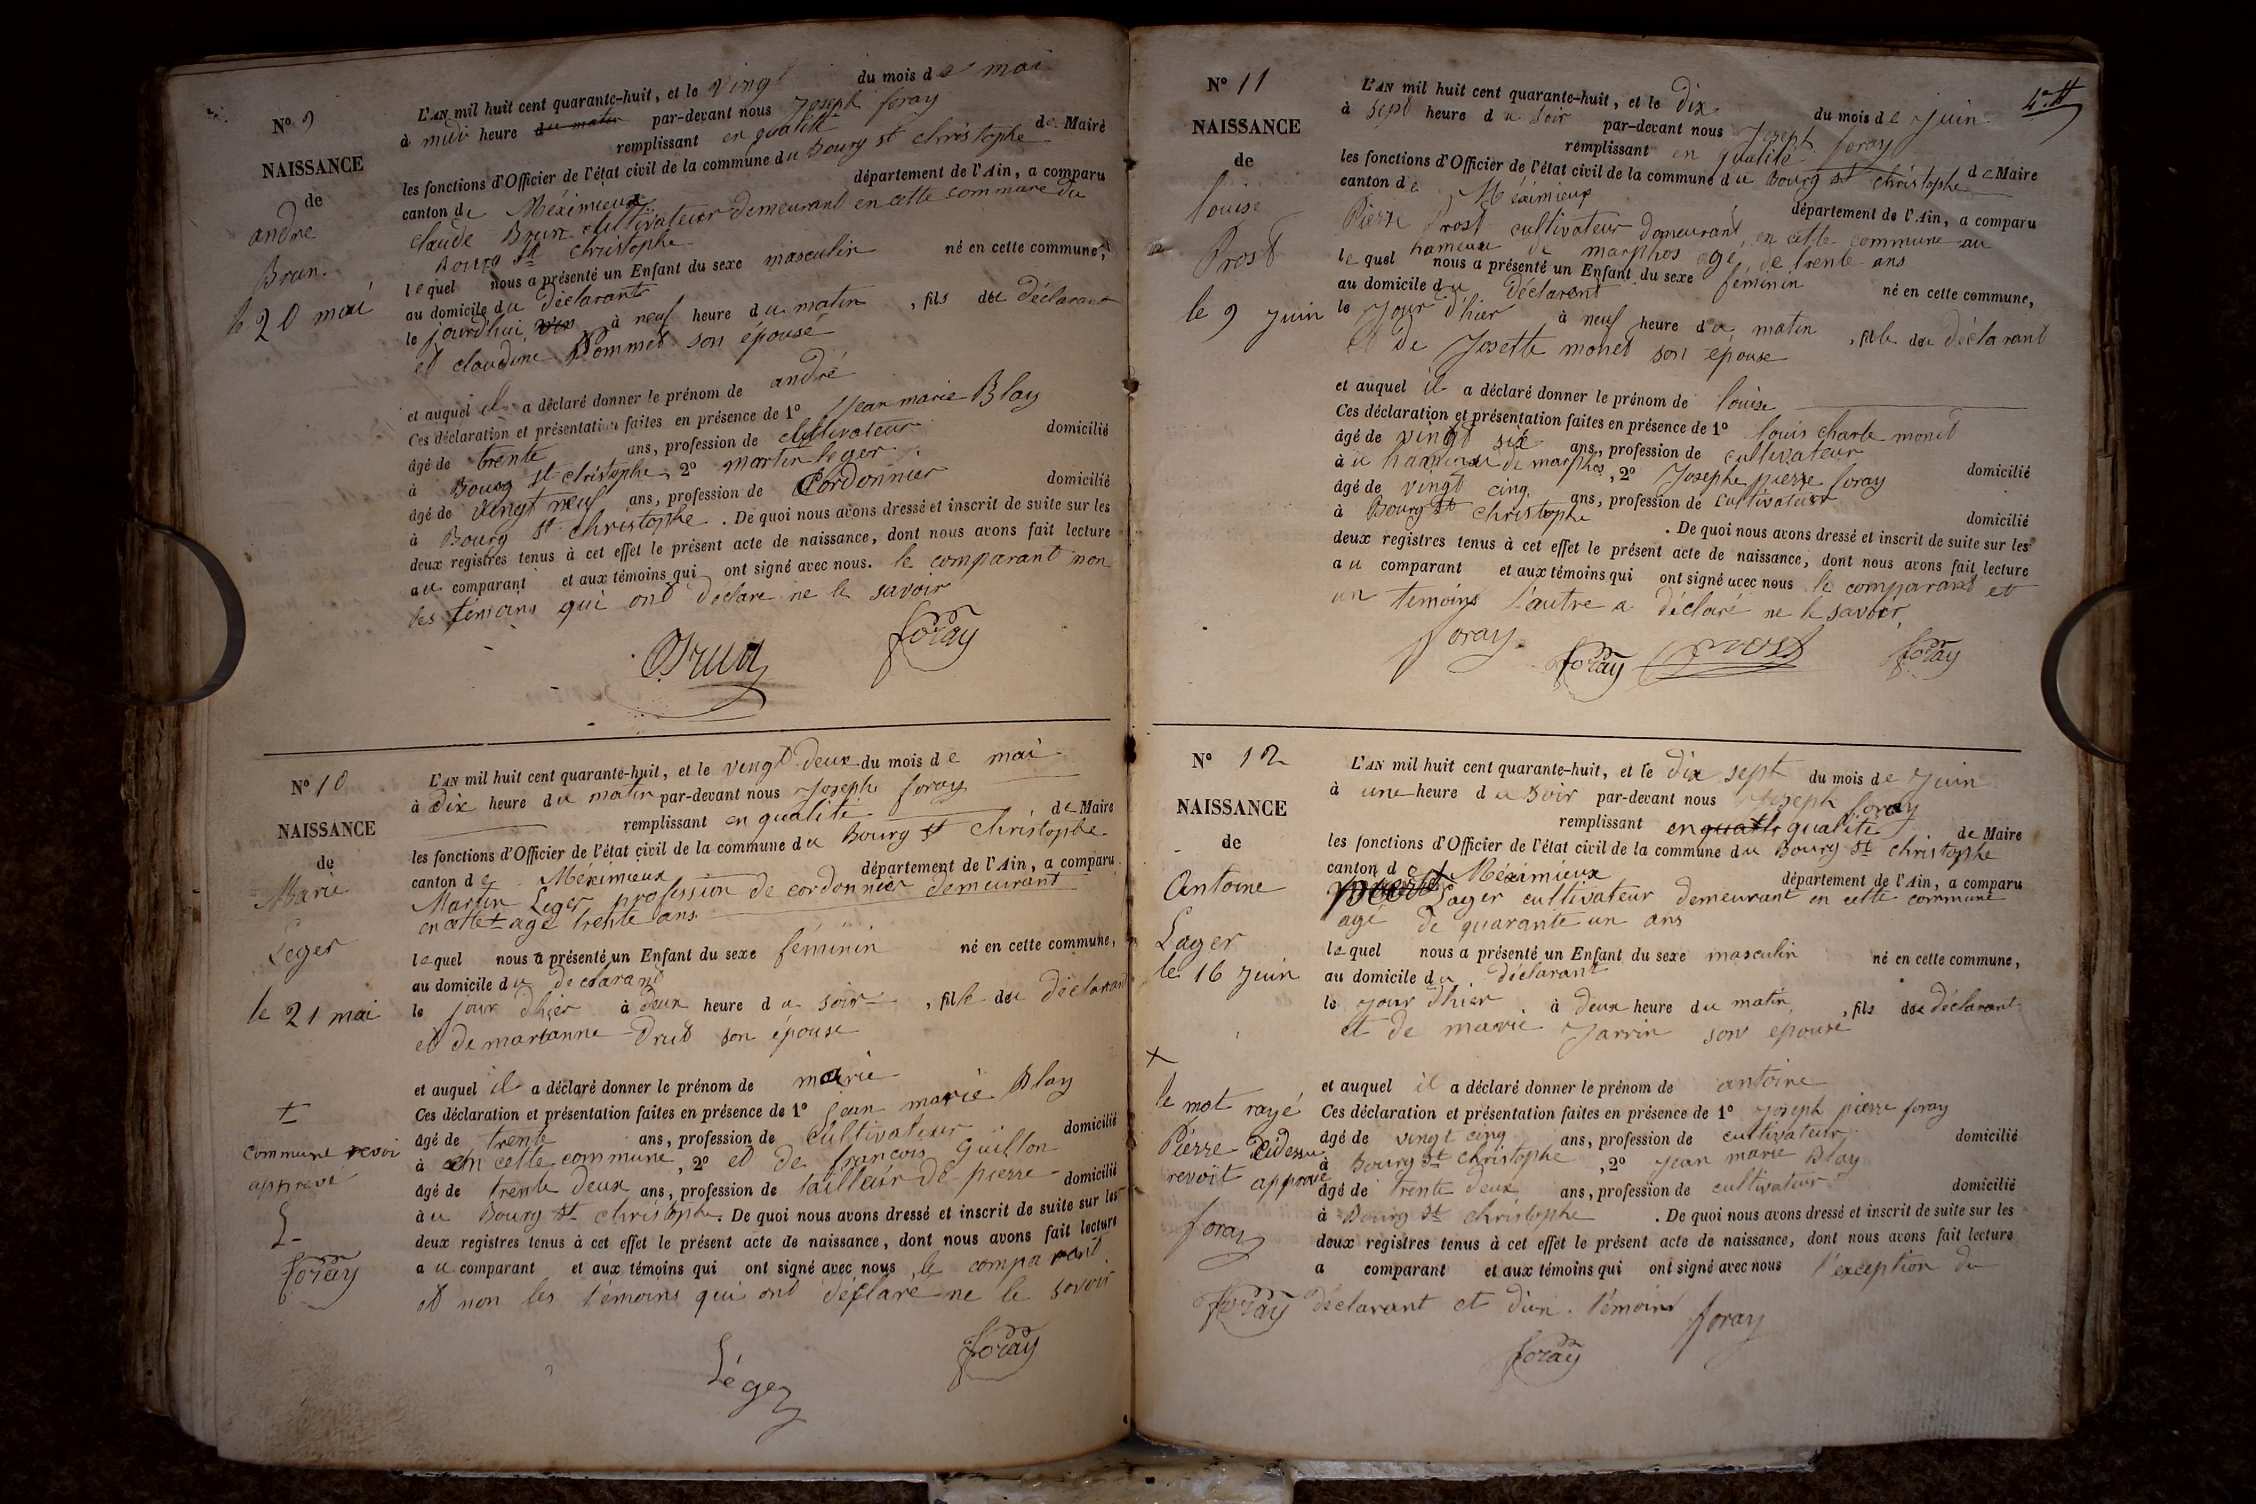 N° 9
NAISSANCE
de
andré
Brun
le 20 mai
L'AN mil huit cent quarante-huit, et le vingt du mois de mai
à midi heure du matin par-devant nous Joseph foray
remplissant en qualité de Maire
les fonctions d'Officier de l'état civil de la commune du Bourg st christophe
canton de Méximieux département de l'Ain, a comparu
claude Brun cultivateur demeurant en cette commune du
Bourg st christophe
lequel nous a présenté un Enfant du sexe masculin né en cette commune,
au domicile du déclarant
le jourd'hui à neuf heure du matin, fils du déclarant
et claudine Pommet son épouse
et auquel il a déclaré donner le prénom de andré
Ces déclaration et présentation faites en présence de 1° Jean marie Blay
âgé de trente ans, profession de cultivateur domicilié
à Bourg st christophe, 2° martin leger
âgé de vingt neuf ans, profession de Cordonnier domicilié
à Bourg st christophe. De quoi nous avons dressé et inscrit de suite sur les
deux registres tenus à cet effet le présent acte de naissance, dont nous avons fait lecture
au comparant et aux témoins qui ont signé avec nous. le comparant non
les témoins qui ont déclaré ne le savoir
Brun foray
N° 10
NAISSANCE
de
Marie
Leger
le 21 mai
+
commune revoi
apprové
L
foray
L'AN mil huit cent quarante-huit, et le vingt deux du mois de mai
à dix heure du matin par-devant nous Joseph foray
remplissant en qualité de Maire
les fonctions d'Officier de l'état civil de la commune du Bourg st christophe
canton de Méximieux département de l'Ain, a comparu
Martin Leger profession de cordonnier demeurant
en cette + agé trente ans
lequel nous a présenté un Enfant du sexe féminin né en cette commune,
au domicile du declarant
le jour dhier à deux heure du soir, fille du déclarant
et de marianne Drut son épouse
et auquel il a déclaré donner le prénom de marie
Ces déclaration et présentation faites en présence de 1° Jean marie Blay
âgé de trente ans, profession de cultivateur domicilié
à en cette commune, 2° et de françois Guillon
âgé de trente deux ans, profession de tailleur de pierre domicilié
àu Bourg st christophe. De quoi nous avons dressé et inscrit de suite sur les
deux registres tenus à cet effet le présent acte de naissance, dont nous avons fait lecture
au comparant et aux témoins qui ont signé avec nous, le comparant
et non les témoins qui ont déclaré ne le savoir
Léger foray
4e
N° 11
NAISSANCE
de
louise
Prost
le 9 juin
L'AN mil huit cent quarante-huit, et le dix du mois de Juin
à sept heure du soir par-devant nous Joseph foray
remplissant en qualité de Maire
les fonctions d'Officier de l'état civil de la commune du Bourg st christophe
canton de Méximieux département de l'Ain, a comparu
Pierre Prost cultivateur demeurant en cette commune au
hameau de marphos agé de trente ans
lequel nous a présenté un Enfant du sexe féminin né en cette commune,
au domicile du déclarant
le jour d'hier à neuf heure du matin, fille du déclarant
et de Josette monet son épouse
et auquel il a déclaré donner le prénom de louise
Ces déclaration et présentation faites en présence de 1° louis charle monet
âgé de vingt six ans, profession de cultivateur domicilié
àu hameau de marphos, 2° Josephe pierre foray
âgé de vingt cinq ans, profession de cultivateur domicilié
à Bourg st christophe. De quoi nous avons dressé et inscrit de suite sur les
deux registres tenus à cet effet le présent acte de naissance, dont nous avons fait lecture
au comparant et aux témoins qui ont signé avec nous le comparant et
un témoins l'autre a déclaré ne le savoir
foray foray prost foray
N° 12
NAISSANCE
de
Antoine
Lager
le 16 juin
+
le mot rayé
Pierre cidessu
revoit approuvé
foray
foray
L'AN mil huit cent quarante-huit, et le dix sept du mois de Juin
à une heure du soir par-devant nous Joseph foray
remplissant en qualité de Maire
les fonctions d'Officier de l'état civil de la commune du Bourg st christophe
canton de Méximieux département de l'Ain, a comparu
Lager cultivateur demeurant en cette commune
agé de quarante un ans
lequel nous a présenté un Enfant du sexe masculin né en cette commune,
au domicile du déclarant
le jour dhier à deux heure du matin, fils du déclarant
et de marie Jarrin son epouse
et auquel il a déclaré donner le prénom de antoine
Ces déclaration et présentation faites en présence de 1° Joseph pierre foray
âgé de vingt cinq ans, profession de cultivateur domicilié
à Bourg st christophe, 2° Jean marie Blay
âgé de trente deux ans, profession de cultivateur domicilié
à Bourg st christophe. De quoi nous avons dressé et inscrit de suite sur les
deux registres tenus à cet effet le présent acte de naissance, dont nous avons fait lecture
a comparant et aux témoins qui ont signé avec nous l'exception du
déclarant et d'un témoins foray
foray